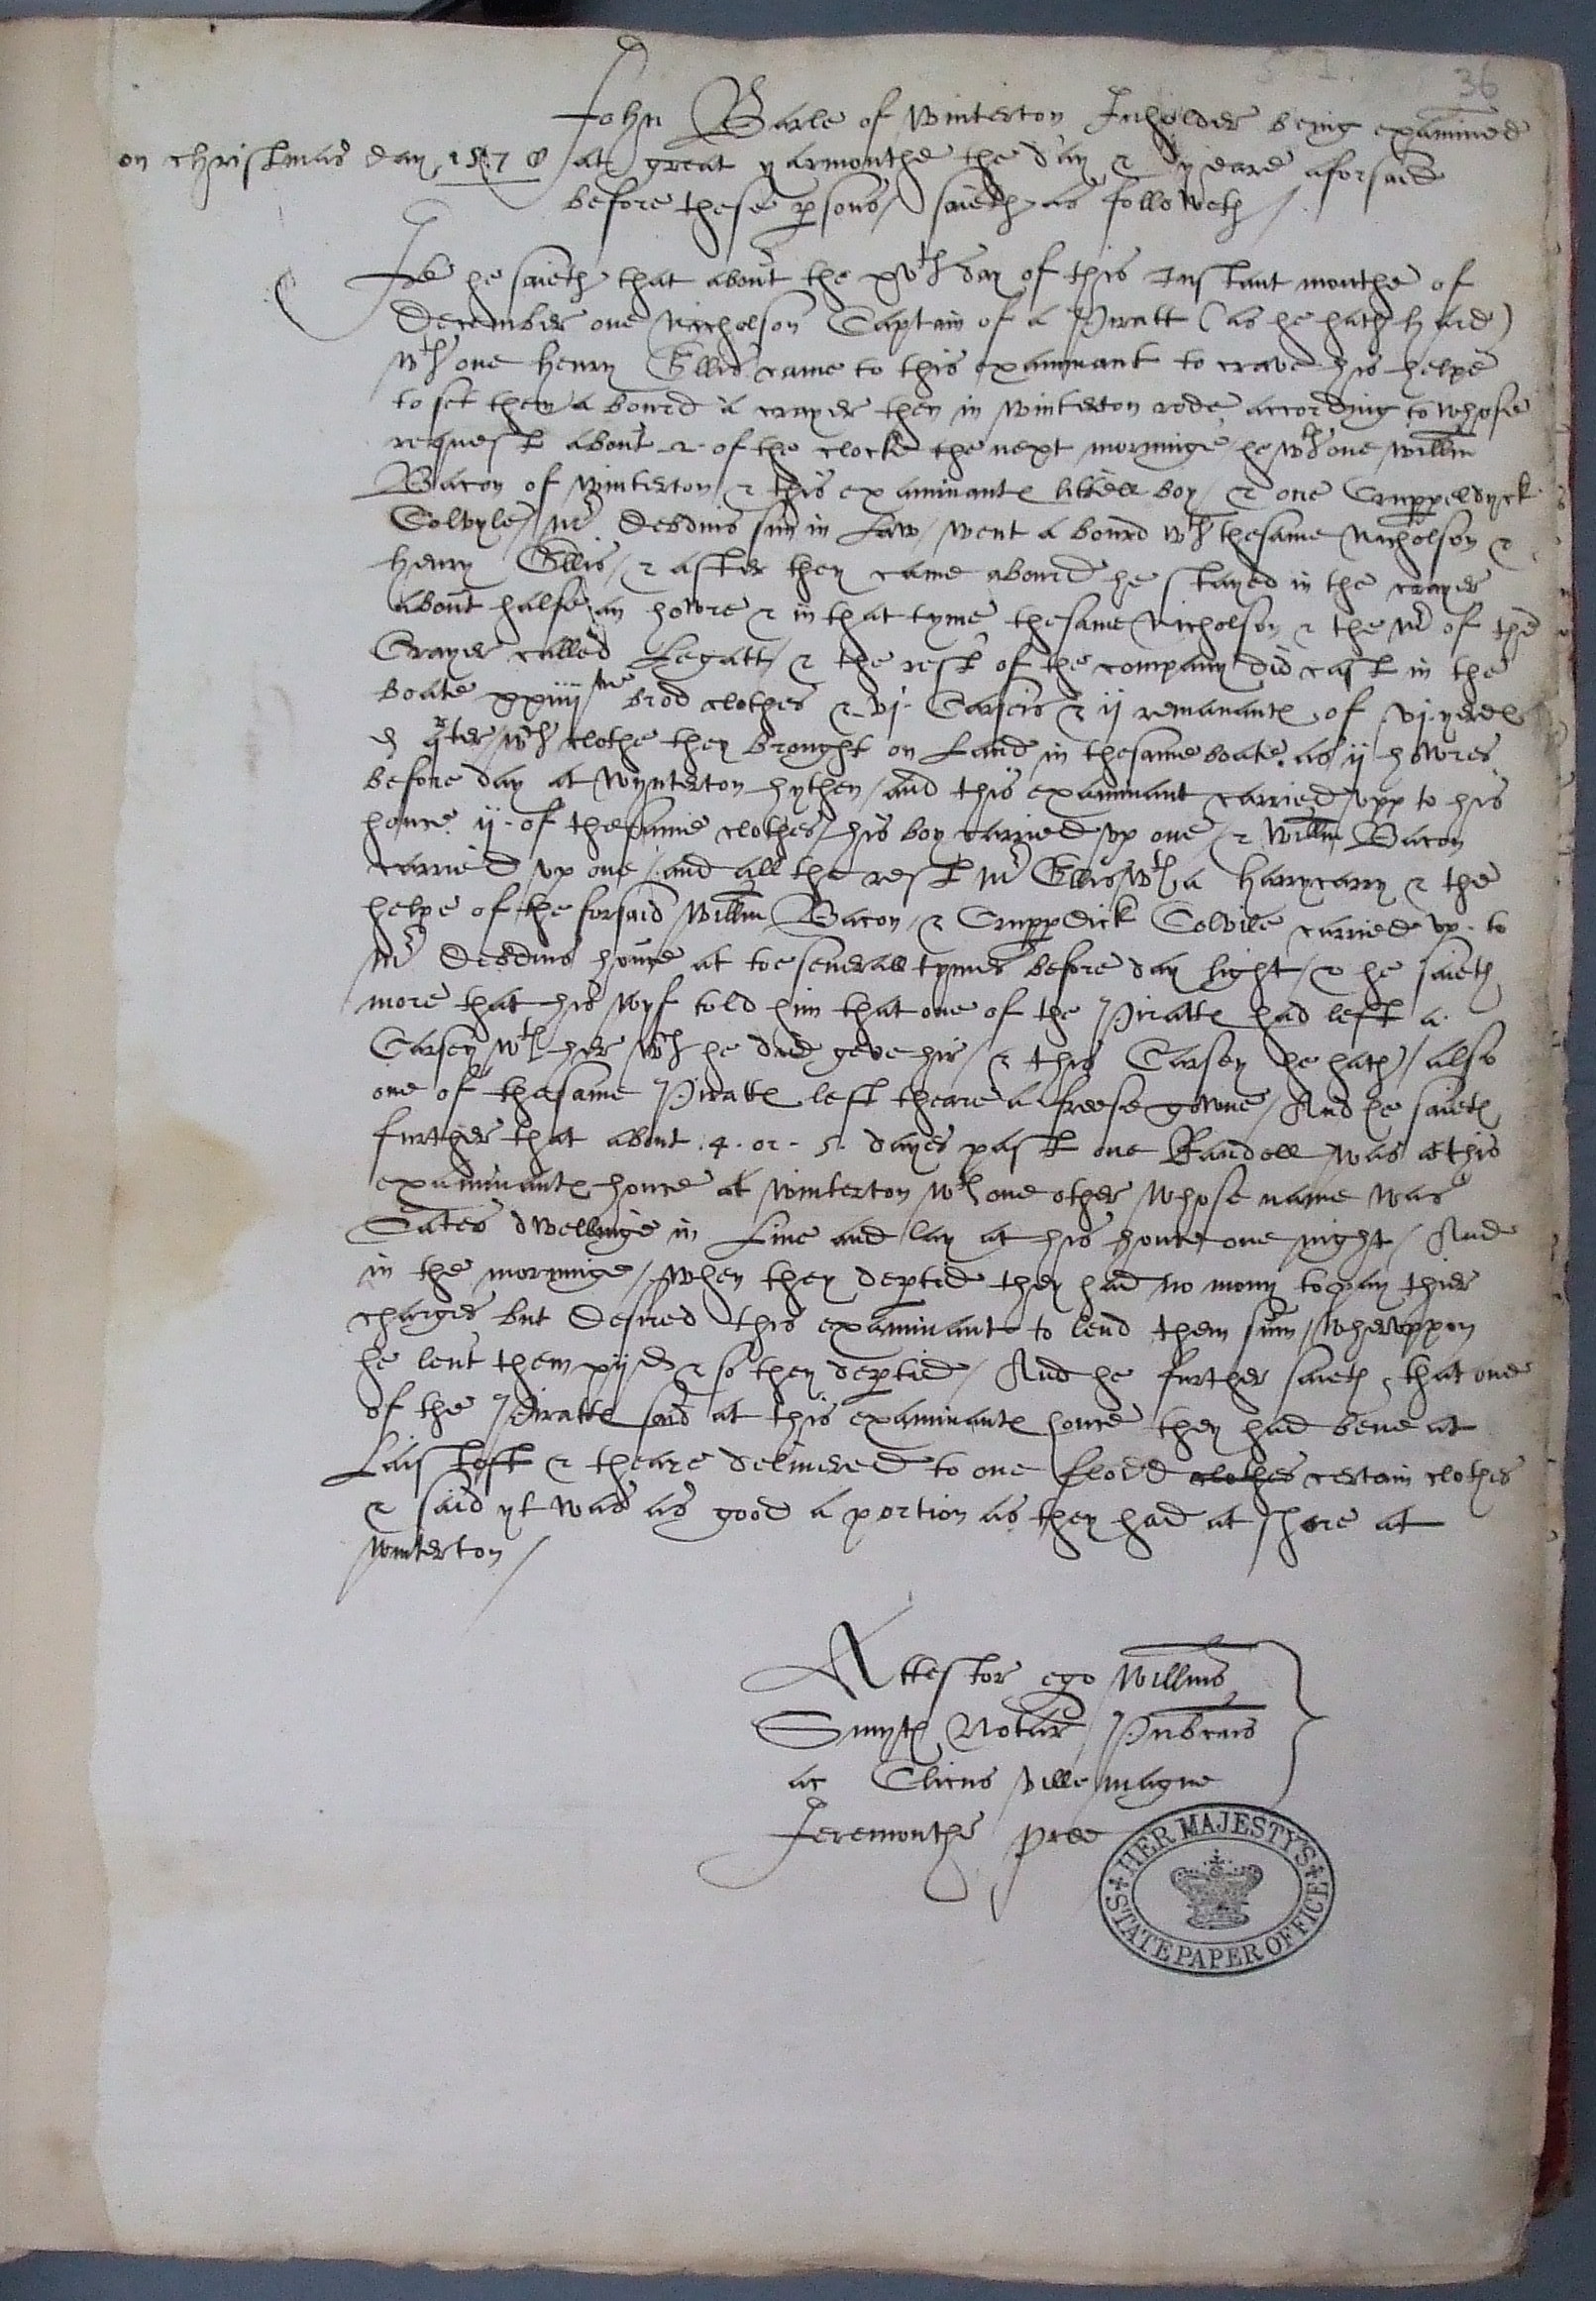 36
John Barle of Winterton Inholder being examined
on christmas day 1578 at great yarmouthe the day & yeare aforsaid
before these psons / saieth as followeth /
he saieth that about the xvth day of this Instant monthe of
December one Nicholson Captain of a Piratt (as he hath hard)
wth one henry Ellis came to this examinant to crave his helpe
to set them abourd a crayer then in winterton rode according to whose
request about 2 of the clocke the next morninge he wth one willm
Bacon of winterton & this examinantes littell boy / & one Cruppeldyck
Colvyle / Mr Debdins sun in Law / went abourd wth thesame Nicholson &
henry Ellis / & after they came abourd he stayed in the crayer
about halfe an howre & in that tyme thesame Nicholson & the Mr of the
Crayer called Legatt / & the rest of the company did cast in the
boate xxiiij brod clothes & vj Carseis & ij remanantes of vj yerdes
& qrter / wch clothe they brought on Land in thesame boate as ij howres
before day at wynterton hythen / and this examinant carried vpp to his
house ij of thesame clothes / his boy carried vp one / & willm Bacon
carried vp one / and all the rest Mr Ellis wth a harrycarry & the
helpe of the forsaid willm Bacon / & Cruppdick Colvile carried vp to
Mr Debdins house at toe severall tymes before day light / & he saieth
more that his wyf told him that one of the Pirattes had left a
Carsey wth her wch he did geve hir / & this Carsey he hath / also
one of thesame Pirattes left theare a freese gowne / And he saieth
further that about 4 or 5 dayes past one Randell was at this
examinantes house at winterton wth one other whose name was
dwellinge in Line and lay at his house one night / And
in the morninge / when they depted they had no mony to pay thier
charges but desired this examinant to lend them sum / wheruppon
he lent them xijd & so they depted / And he further saieth that one
of the Pirattes said at this examinantes house they had bene at
Laistoft & theare delivered to one Flodd clothes certain clothes
& said yt was as good a portion as they had at shore at
winterton /
Attestor ego Willms
Smyth Notar Publicus
ac Clicus ville magne
Jeremouthe pred
HER MAJESTY'S
STATE PAPER OFFICE